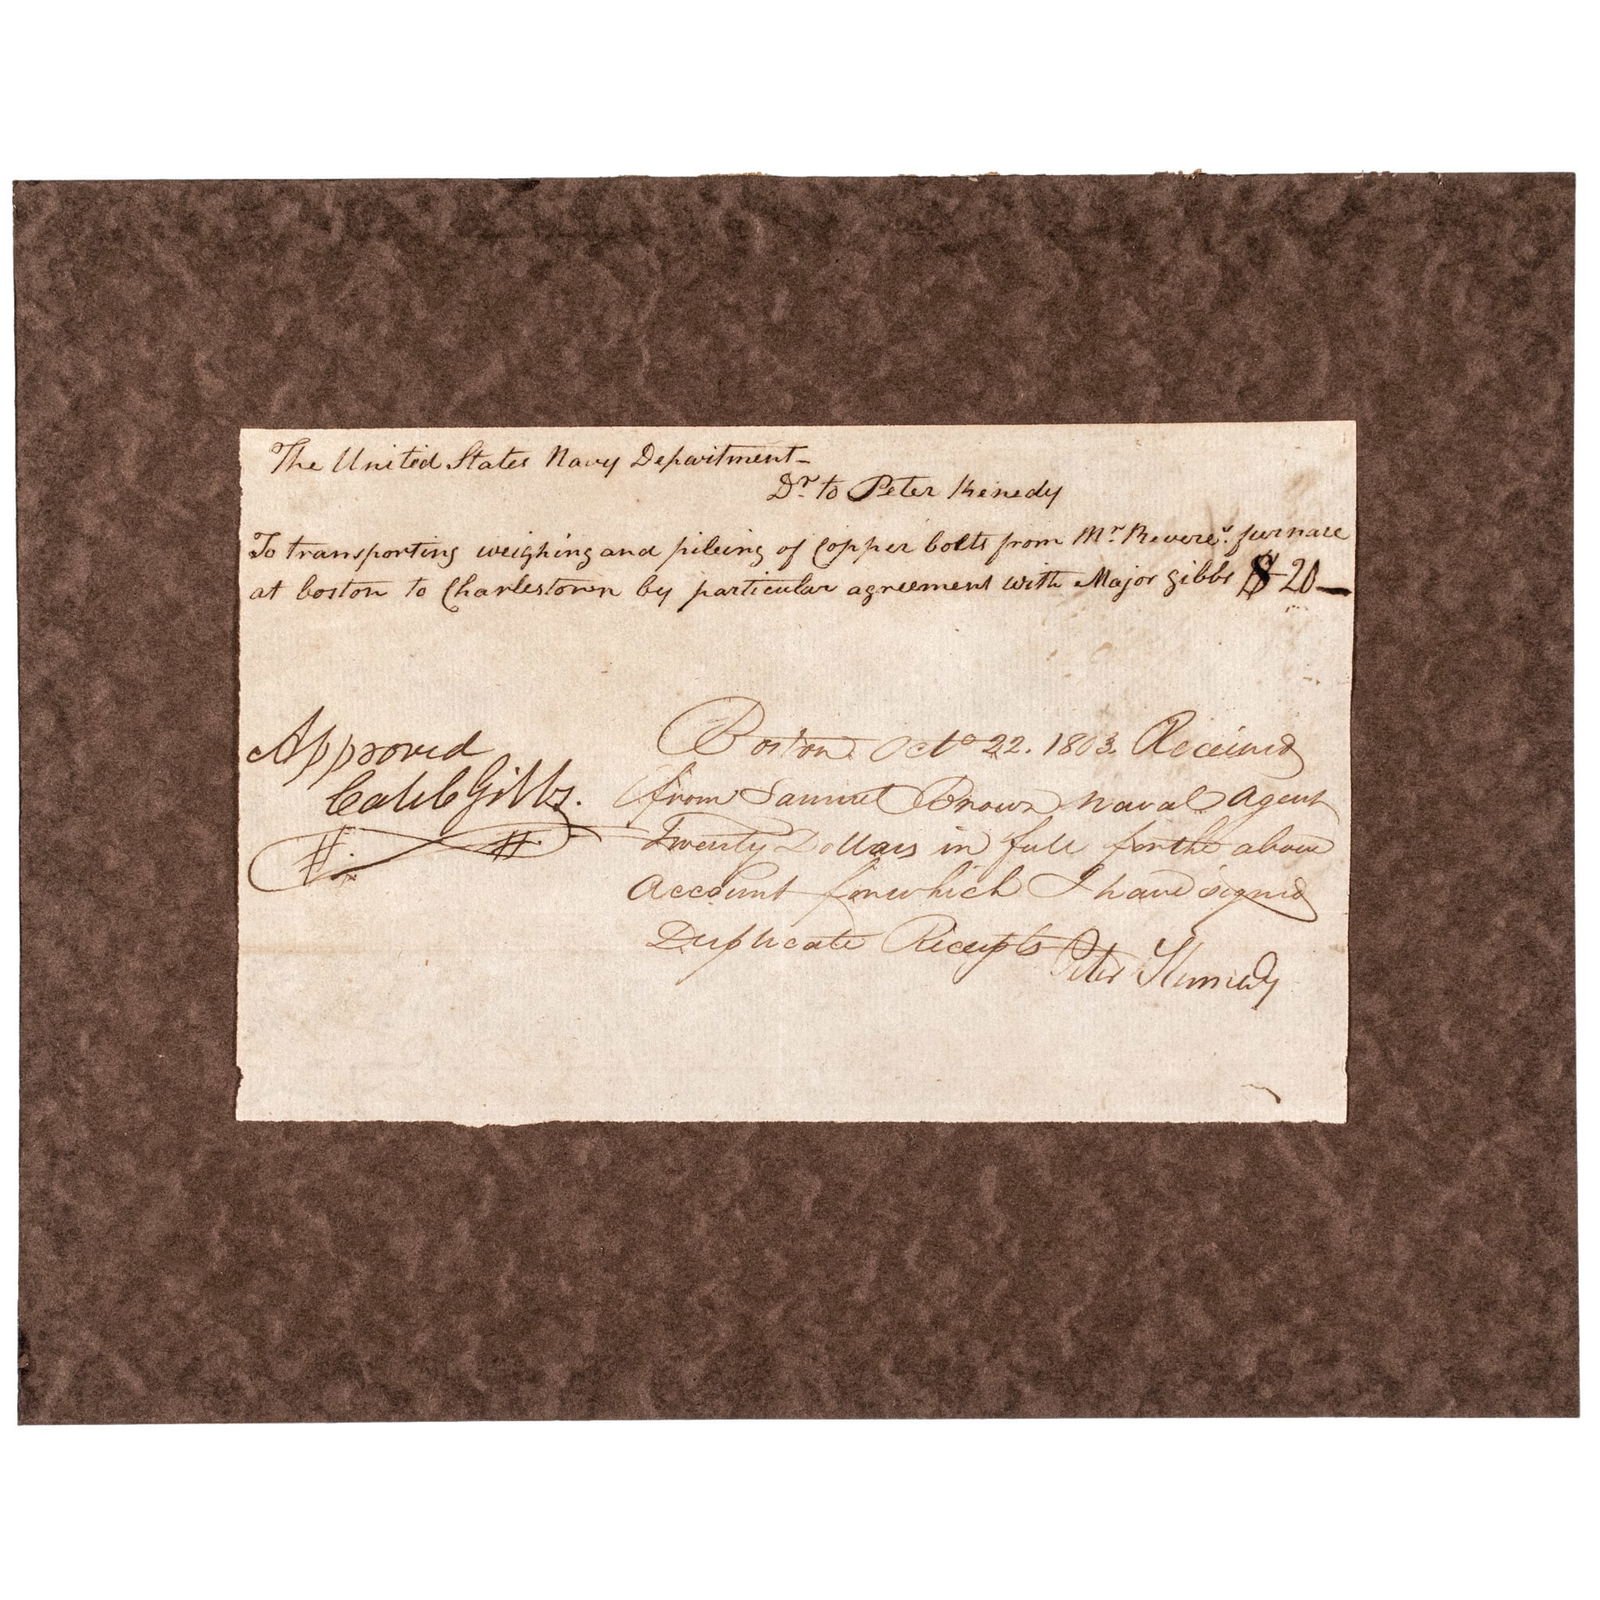 The United States Navy Department -
Dr to Peter Kenedy
To transporting weighing and pileing of Copper bolts from Mr Revere's furnace
at boston to Charlestown by particular agreement with Major Gibbs $ 20 —
Approved
Caleb Gibbs.
Boston Octo 22. 1803. Received
from Samuel Brown Naval Agent
Twenty Dollars in full for the above
Account for which I have signed
Duplicate Receipts
Peter Kennedy